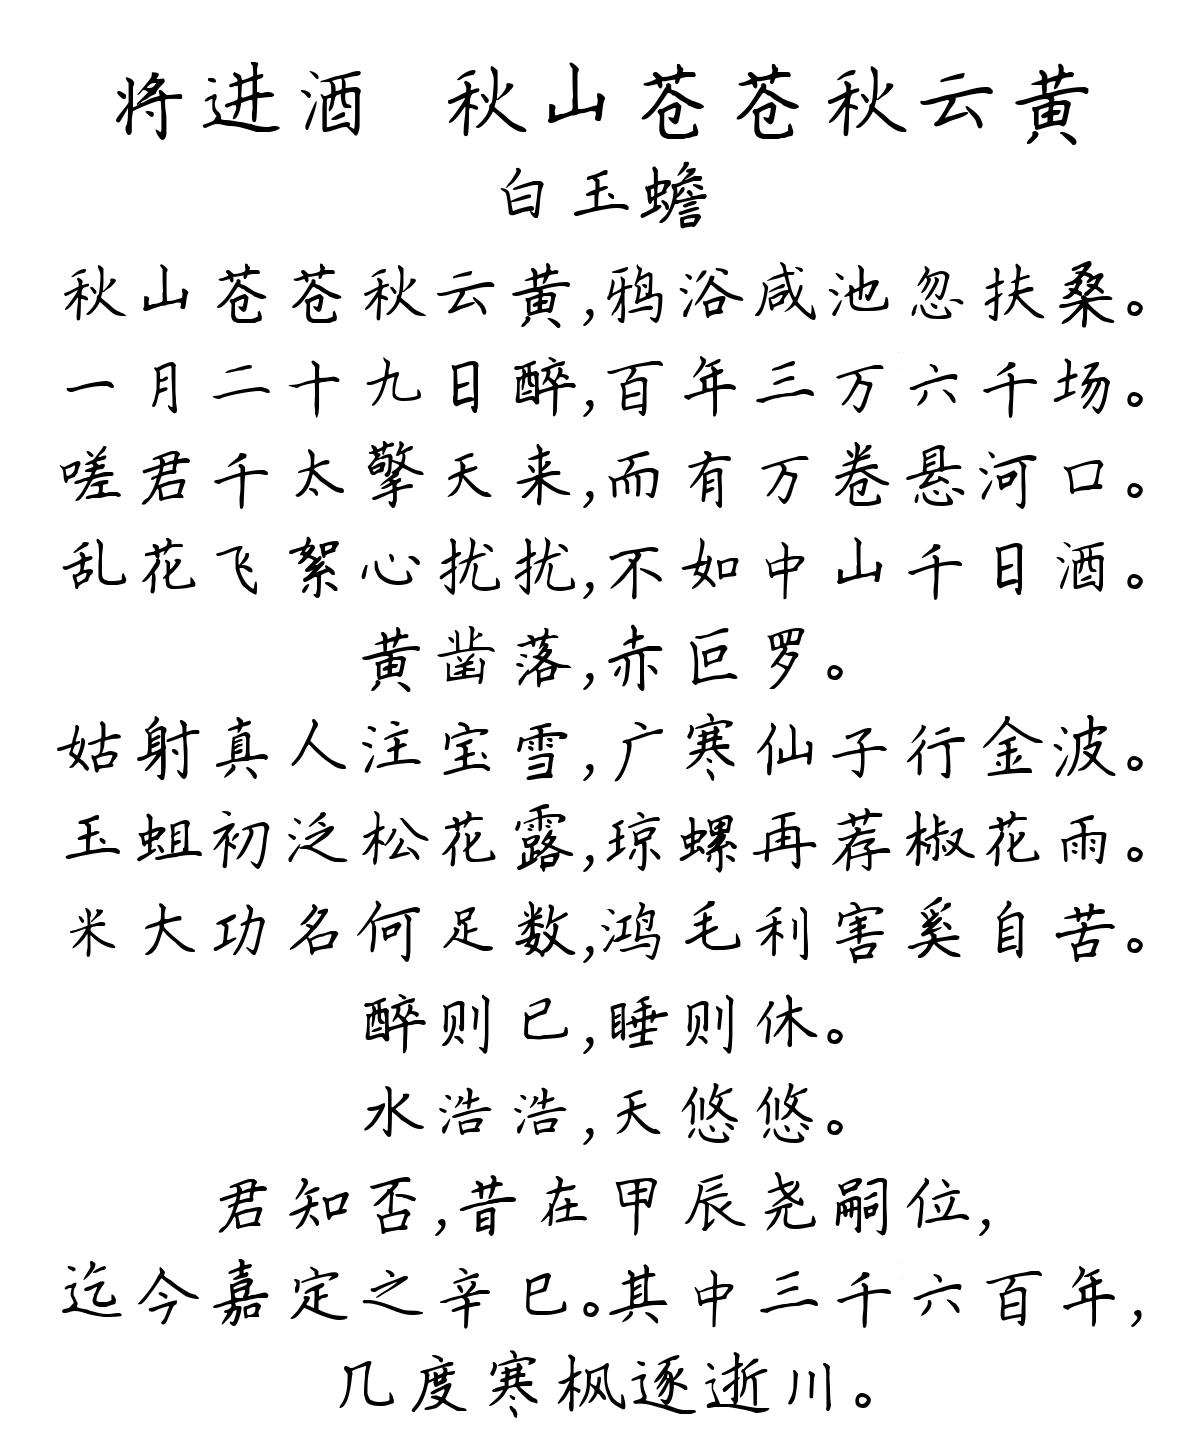 将进酒 秋山苍苍秋云黄
白玉蟾
秋山苍苍秋云黄,鸦浴咸池忽扶桑。
一月二十九日醉,百年三万六千场。
嗟君千太擎天来,而有万卷悬河口。
乱花飞絮心扰扰,不如中山千日酒。
黄凿落,赤叵罗。
姑射真人注宝雪,广寒仙子行金波。
玉蛆初泛松花露,琼螺再荐椒花雨。
米大功名何足数,鸿毛利害奚自苦。
醉则已,睡则休。
水浩浩,天悠悠。
君知否,昔在甲辰尧嗣位,
迄今嘉定之辛巳。其中三千六百年,
几度寒枫逐逝川。